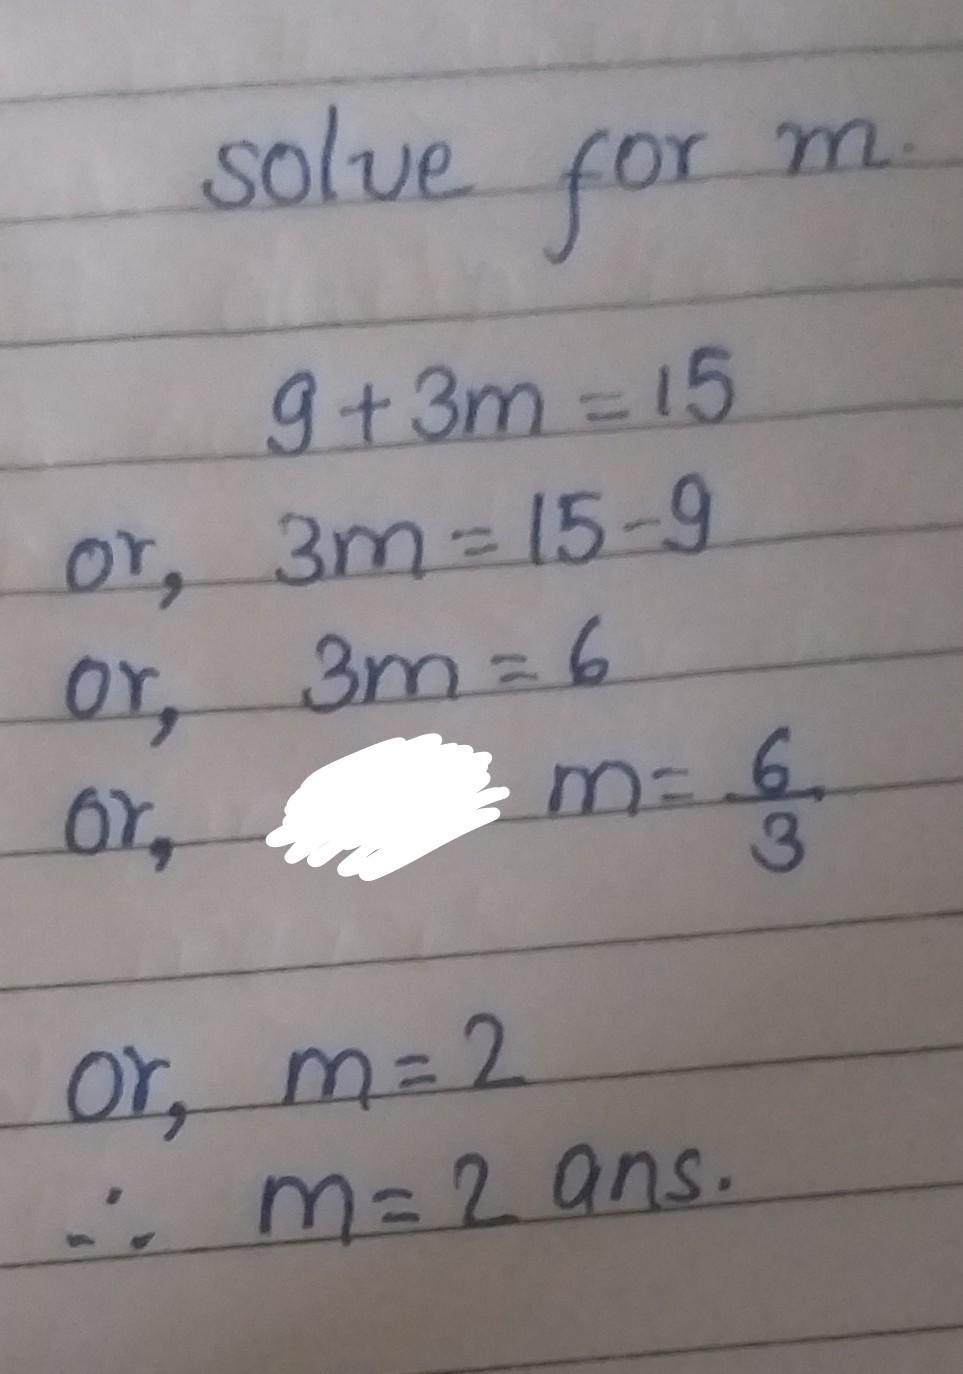 solve for m.
9 + 3m = 15
or, 3m = 15 - 9
or, 3m = 6
or, m = 6/3
or, m = 2
∴ m = 2 ans.